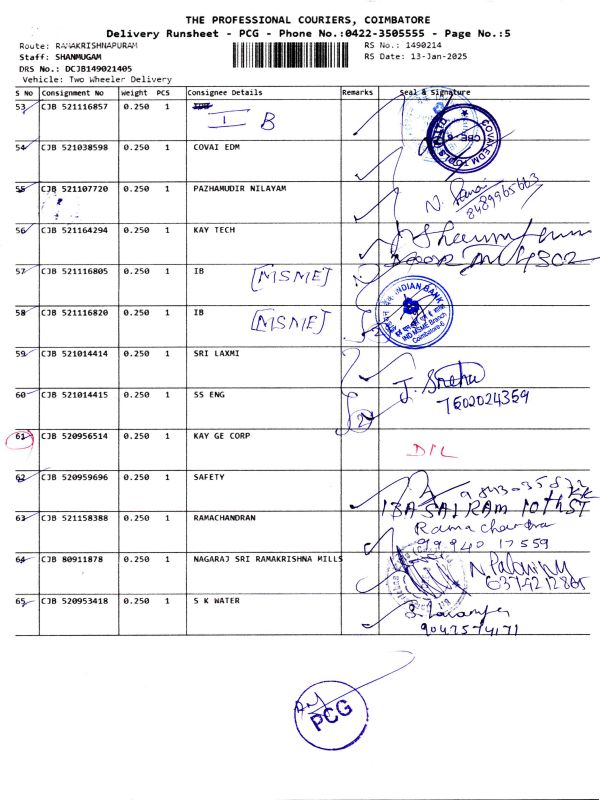 THE PROFESSIONAL COURIERS, COIMBATORE
Delivery Runsheet - PCG - Phone No.:0422-3505555 - Page No.:5
Route: RAMAKRISHNAPURAM RS No.: 1490214
Staff: SHANMUGAM RS Date: 13-Jan-2025
DRS No.: DCJB149021405
Vehicle: Two Wheeler Delivery
S No Consignment No Weight PCS Consignee Details Remarks Seal & Signature
53 CJB 521116857 0.250 1 I B
54 CJB 521038598 0.250 1 COVAI EDM
COVAI EDM TOOLS (P) LTD. CBE-6
55 CJB 521107720 0.250 1 PAZHAMUDIR NILAYAM
8489965663
56 CJB 521164294 0.250 1 KAY TECH
57 CJB 521116805 0.250 1 IB [MSME]
58 CJB 521116820 0.250 1 IB [MSME]
INDIAN BANK
IND MSME Branch
Coimbatore-6
59 CJB 521014414 0.250 1 SRI LAXMI
60 CJB 521014415 0.250 1 SS ENG
J. Sneha
7602024359
2
61 CJB 520956514 0.250 1 KAY GE CORP
62 CJB 520959696 0.250 1 SAFETY
SAI RAM 10th ST
63 CJB 521158388 0.250 1 RAMACHANDRAN
Ramachandra
99940 17559
64 CJB 80911878 0.250 1 NAGARAJ SRI RAMAKRISHNA MILLS
6374212865
65 CJB 520953418 0.250 1 S K WATER
9042574171
PCG